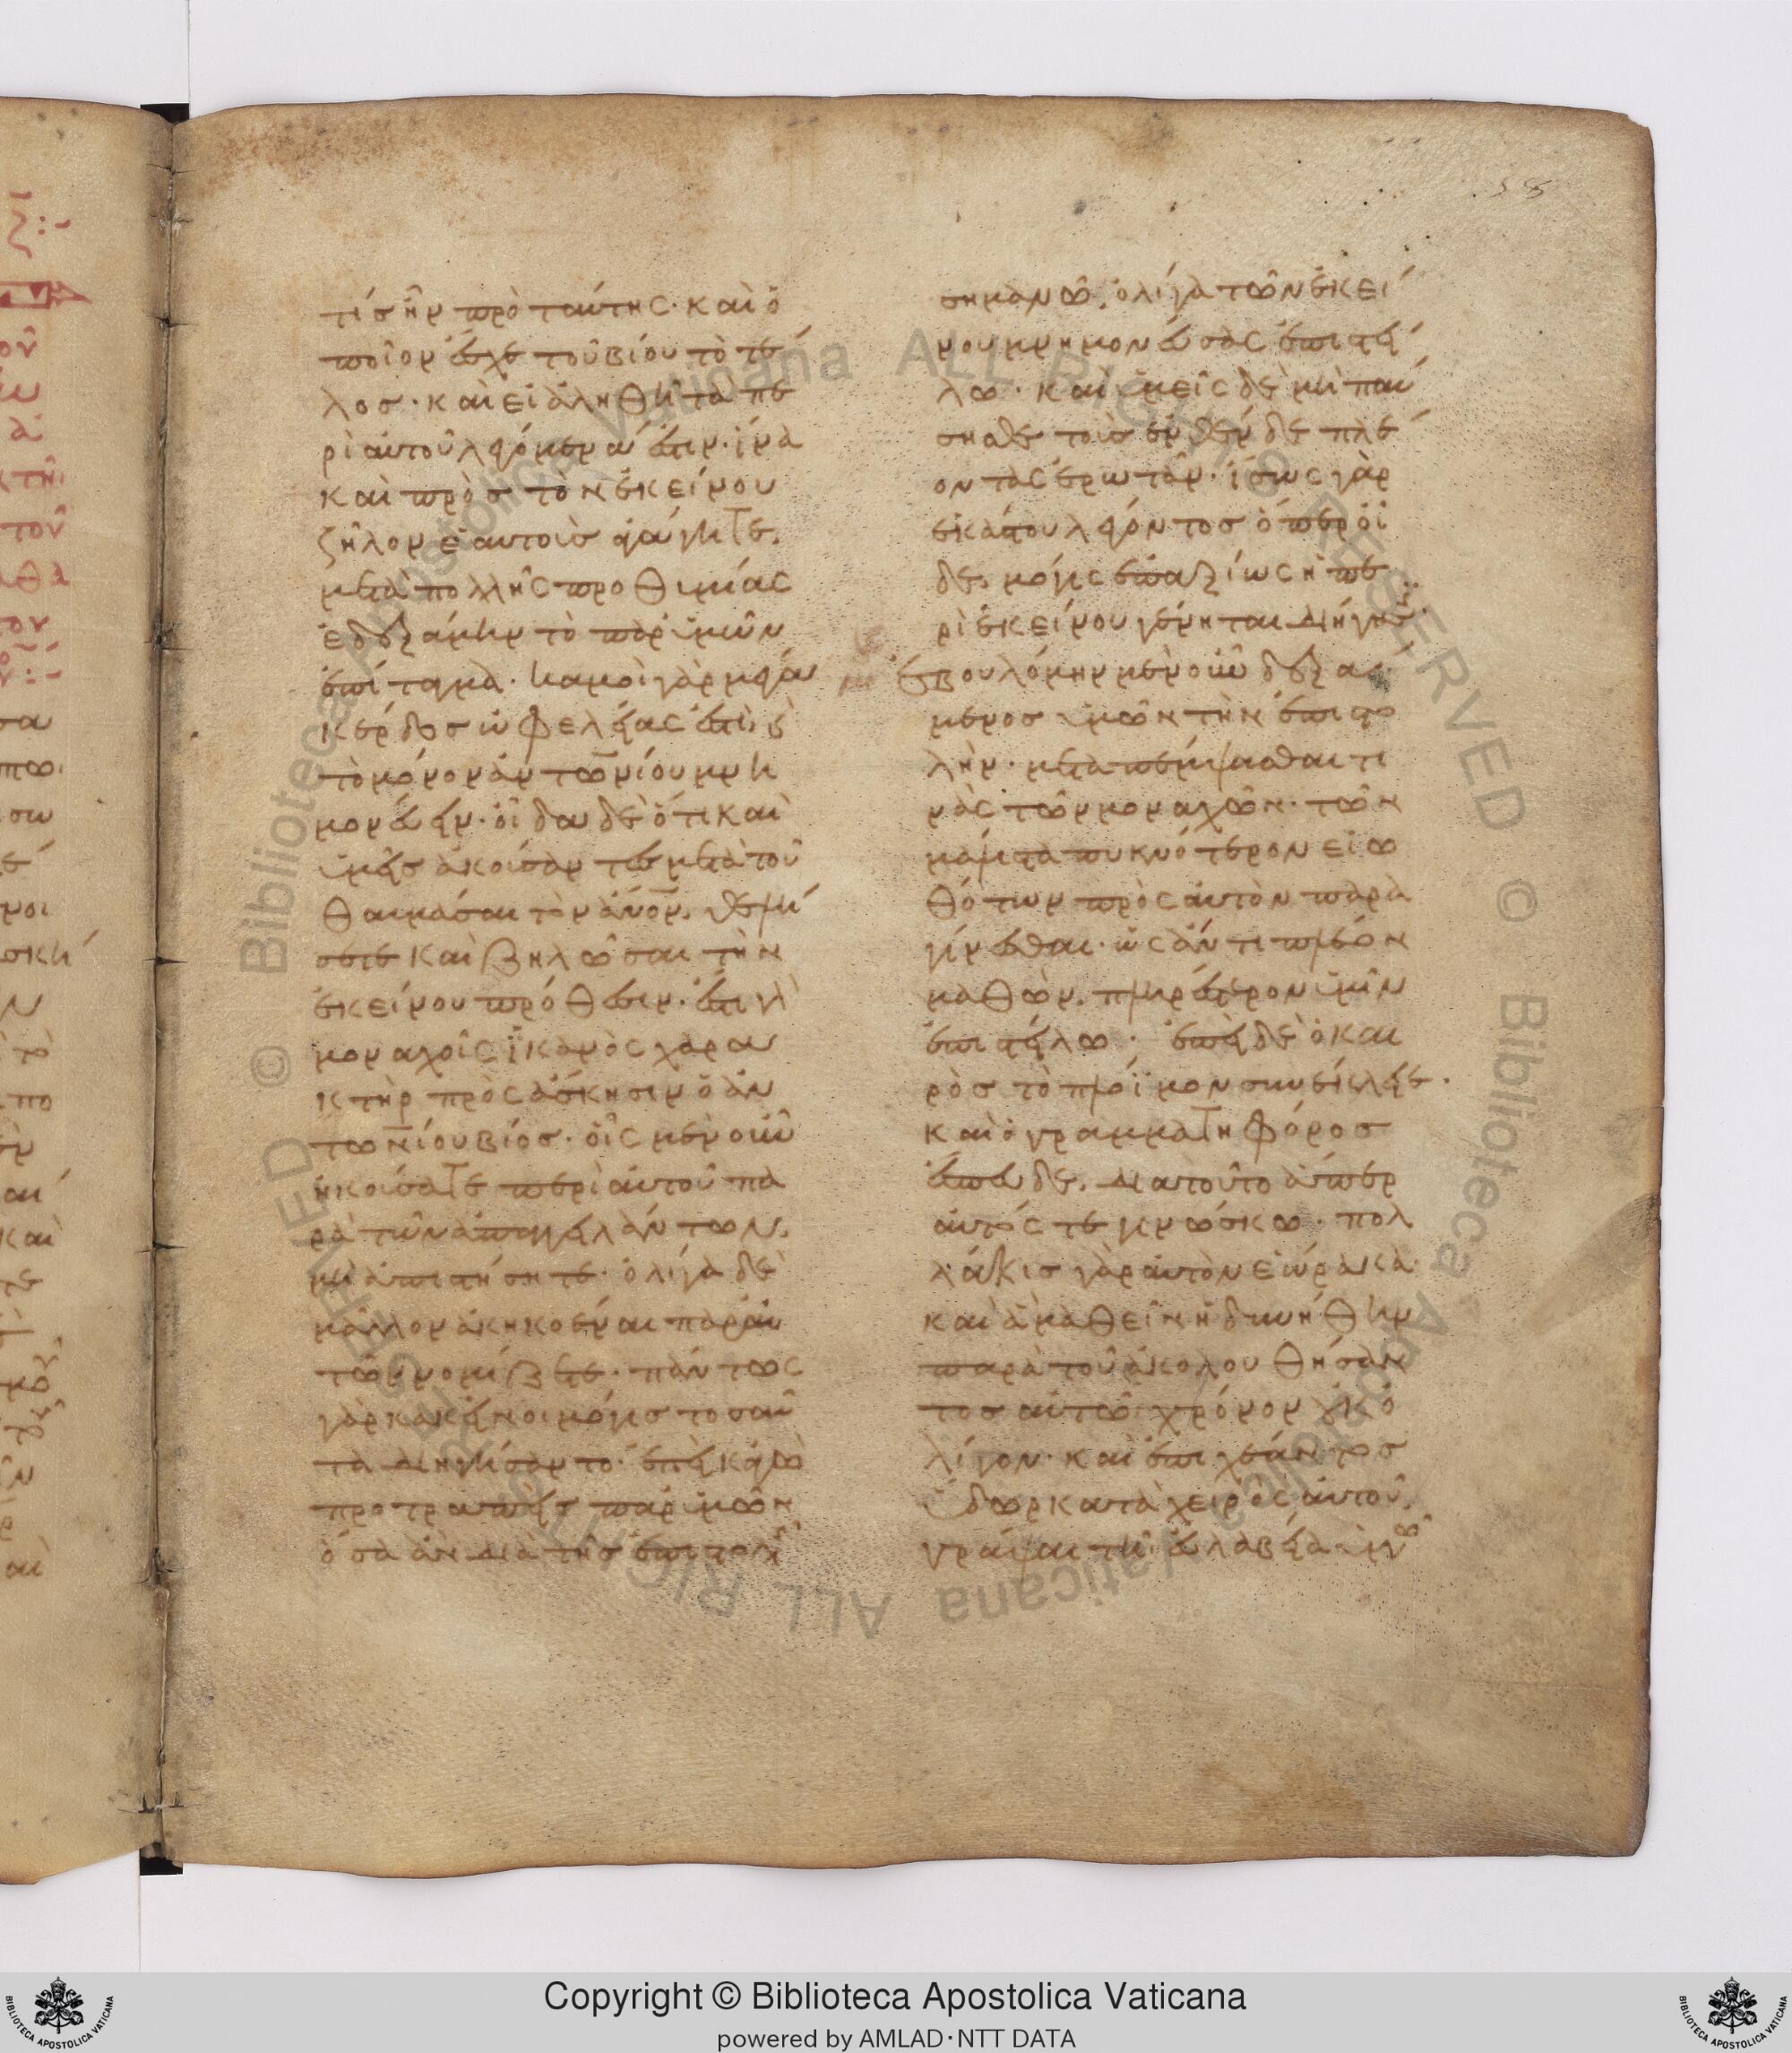 τίσ ἦν πρὸ ταύτης· καὶ ὁ
ποῖον ἔσχε τοῦ βίου τὸ τέ
λοσ· καὶ εἰ ἀληθῆ τὰ πε
ρὶ αὐτοῦ λεγόμενά ἐστιν· ἵνα
καὶ πρὸσ τὸν ἐκείνου
ζῆλον ἑαυτοὺσ ἀγάγητε,
μετὰ πολλῆς προθυμίας
ἐδεξάμην τὸ παρ' ὑμῶν
ἐπίταγμα· κἀμοὶ γὰρ μέγα
κέρδοσ ὠφελείας ἐστὶ, κ(αὶ)
τὸ μόνον ἀντωνίου μνη
μονεύειν· οἶδα δὲ ὅτι καὶ
ὑμεῖσ ἀκούσαντεσ μετὰ τοῦ
θαυμάσαι τὸν ἄνον, θελή
σετε καὶ ζηλῶσαι τὴν
ἐκείνου πρόθεσιν· ἔστι γὰρ
μοναχοῖς ἱκανὸς χαρα
κτὴρ πρὸς ἄσκησιν ὁ ἀν
τωνίου βίοσ· οἷς μὲν οὖν
ἠκούσατε περὶ αὐτοῦ πα
ρὰ τῶν ἀπαγγειλάντων,
μὴ ἀπιστήσητε· ὀλίγα δὲ
μᾶλλον ἀκηκοέναι παρ' αὐ
τῶν νομίζετε· πάντως
γὰρ κἀκεῖνοι μόγισ τοσαῦ
τα διηγήσαντο· ἐπεὶ κἀγὼ
προτραπεὶσ παρ' ὑμῶν
ὅσα ἂν διὰ τῆσ ἐπιστολῆσ
σημανῶ, ὀλίγα τῶν ἐκεί
νου μνημονεύσας ἐπιστεί
λω· καὶ ὑμεῖς δὲ μὴ παύ
σησθε τοὺσ ἐνθένδε πλέ
οντας ἐρωτᾶν· ἴσως γὰρ
ἑκάστου λέγοντοσ ὅπερ οἶ
δε, μόγις ἐπαξίως ἡ πε
ρὶ ἐκείνου γένηται διήγησις·
ἐβουλόμην μὲν οὖν δεξά
μενοσ ὑμῶν τὴν ἐπιστο
λὴν· μεταπέμψασθαί τι
νὰς τῶν μοναχῶν· τῶν
μάλιστα πυκνότερον εἰω
θότων πρὸς αὐτὸν παρα
γίνεσθαι· ὡς ἄν τι πλέον
μαθὼν, πληρέστερον ὑμῖν
ἐπιστείλω· ἐπεὶ δὲ ὁ και
ρὸσ τὸ πλόϊμον συνέκλειε·
καὶ ὁ γραμματηφόροσ
ἔσπευδε, διατοῦτο ἅπερ
αὐτός τε γινώσκω· πολ
λάκισ γὰρ αὐτὸν ἑώρακα·
καὶ ἃ μαθεῖν ἠδυνήθην
παρὰ τοῦ ἀκολουθήσαν
τοσ αὐτῶ χρόνον οὐκ ὀ
λίγον· καὶ ἐπιχέαντοσ
ὕδωρ κατὰ χεῖρας αὐτοῦ,
γράψαι τῆ εὐλαβεία ὑμῶν